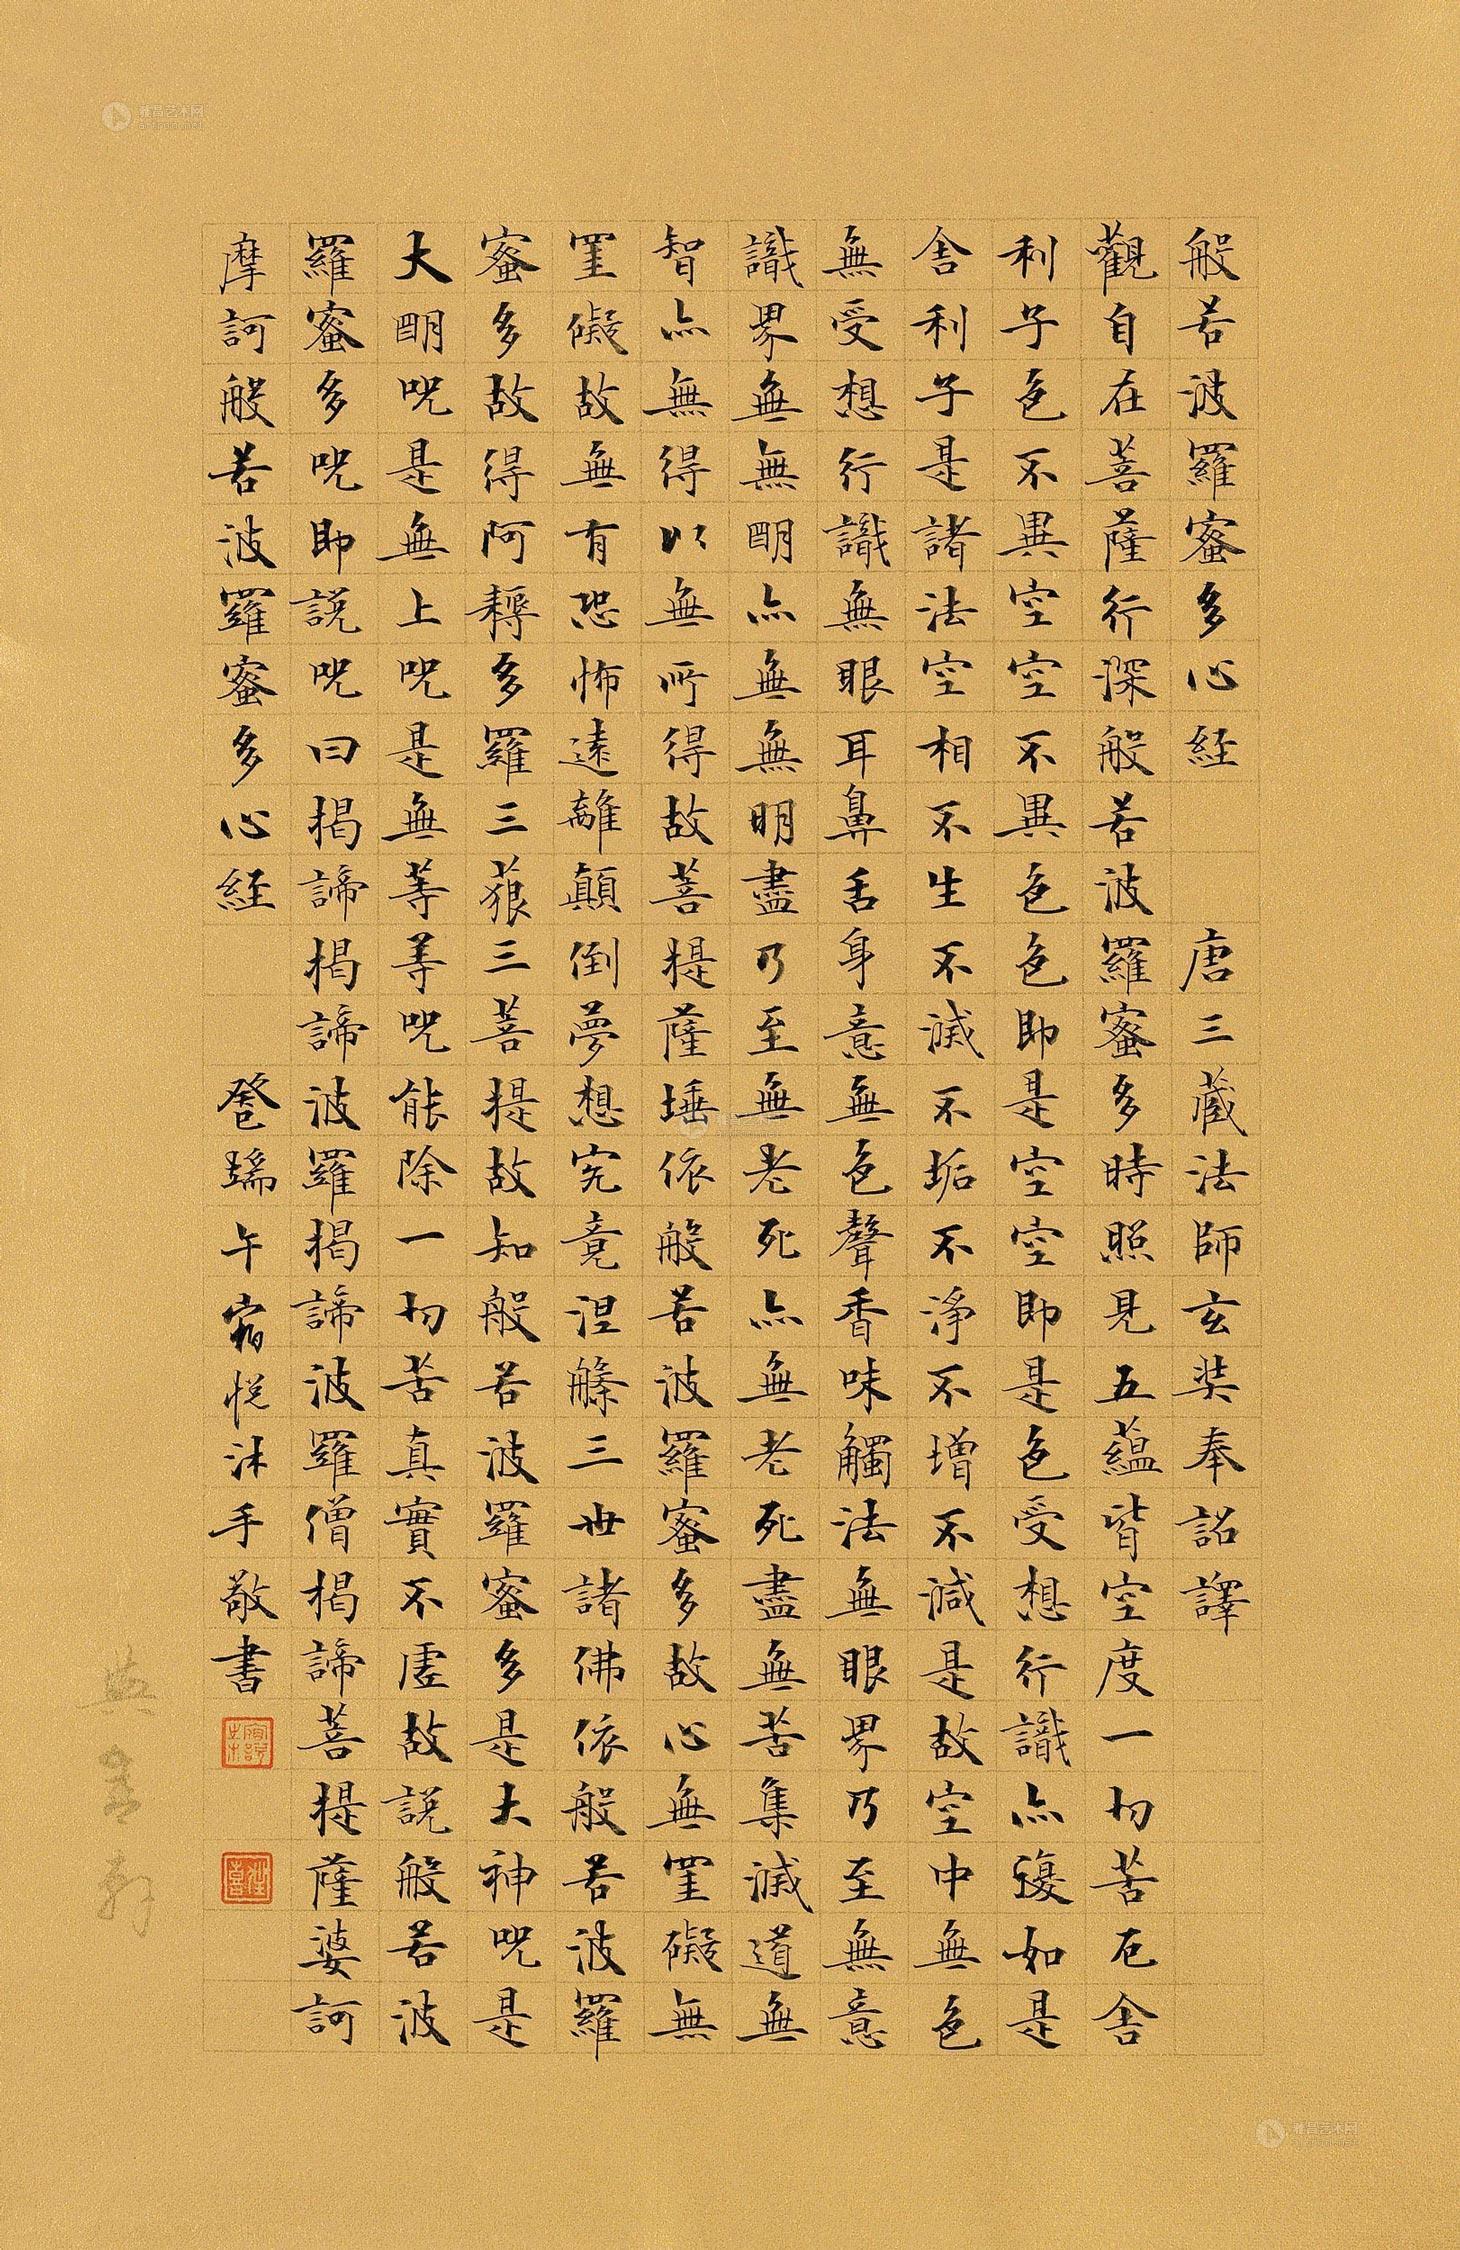 般若波羅蜜多心経 唐三藏法師玄奘奉詔譯
觀自在菩薩行深般若波羅蜜多時照見五蘊皆空度一切苦厄舍
利子色不異空空不異色色即是空空即是色受想行識亦復如是
舍利子是諸法空相不生不滅不垢不淨不增不減是故空中無色
無受想行識無眼耳鼻舌身意無色聲香味觸法無眼界乃至無意
識界無無明亦無無明盡乃至無老死亦無老死盡無苦集滅道無
智亦無得以無所得故菩提薩埵依般若波羅蜜多故心無罣礙無
罣礙故無有恐怖遠離顛倒夢想究竟涅槃三世諸佛依般若波羅
蜜多故得阿耨多羅三藐三菩提故知般若波羅蜜多是大神咒是
大明咒是無上咒是無等等咒能除一切苦真實不虛故說般若波
羅蜜多咒即說咒曰揭諦揭諦波羅揭諦波羅僧揭諦菩提薩婆訶
摩訶般若波羅蜜多心経 端午甯悦沐手敬書
雅昌艺术网
artron.net
雅昌艺术网
artron.net